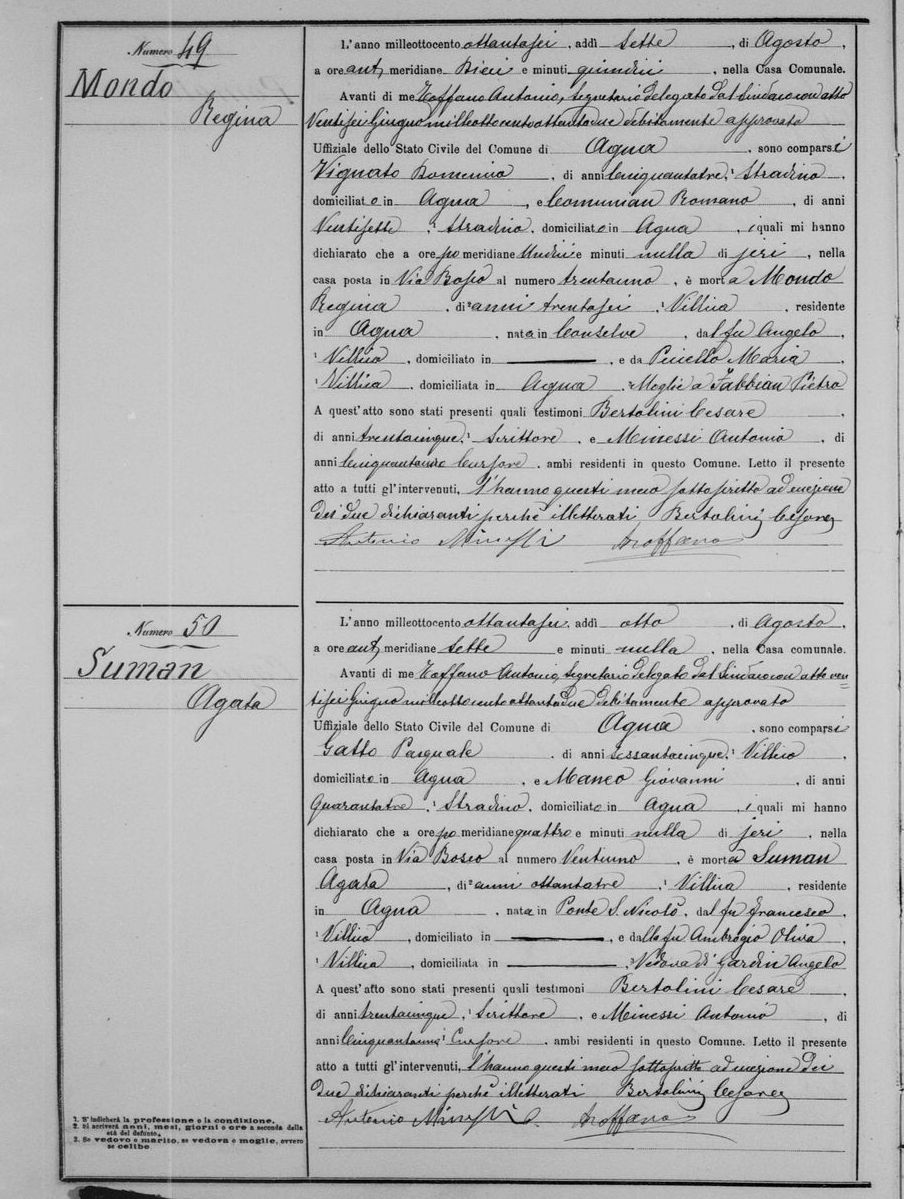 Numero 49
Mondo
Regina
L'anno milleottocento ottantasei, addì Sette, di Agosto,
a ore ant meridiane Dieci e minuti quindici, nella Casa Comunale.
Avanti di me Toffano Antonio, Segretario delegato dal Sindaco con atto
Ventisei Giugno milleottocentoottantadue debitamente approvato
Uffiziale dello Stato Civile del Comune di Agna, sono comparsi
Vignato Domenico, di anni Cinquantatre, ¹ Stradino,
domiciliato in Agna, e Comunian Romano, di anni
Ventisette, ¹ Stradino, domiciliato in Agna, i quali mi hanno
dichiarato che a ore po meridiane Undici e minuti nulla di jeri, nella
casa posta in Via Bosco al numero trentauno, è morta Mondo
Regina, di ² anni trentasei, ¹ Villica, residente
in Agna, nata in Conselve, dal fu Angelo,
¹ Villico, domiciliato in ———, e da Piciello Maria,
¹ Villica, domiciliata in Agna, ³ Moglie a Fabbian Pietro
A quest'atto sono stati presenti quali testimoni Bertolini Cesare,
di anni trentacinque, ¹ Scrittore, e Minessi Antonio, di
anni Cinquantauno Cursore, ambi residenti in questo Comune. Letto il presente
atto a tutti gl'intervenuti, l'hanno questi meco sottoscritto ad eccezione
dei due dichiaranti perchè illetterati Bertolini Cesare
Antonio Minessi Toffano
Numero 50
Suman
Agata
L'anno milleottocento ottantasei, addì otto, di Agosto,
a ore ant meridiane Sette e minuti nulla, nella Casa comunale.
Avanti di me Toffano Antonio, Segretario delegato dal Sindaco con atto ven=
tisei Giugno milleottocentoottantadue debitamente approvato
Uffiziale dello Stato Civile del Comune di Agna, sono comparsi
Gatto Pasquale, di anni sessantacinque, ¹ Villico,
domiciliato in Agna, e Maneo Giovanni, di anni
Quarantatre, ¹ Stradino, domiciliato in Agna, i quali mi hanno
dichiarato che a ore po meridiane quattro e minuti nulla di jeri, nella
casa posta in Via Bosco al numero Ventiuno, è morta Suman
Agata, di ² anni ottantatre, ¹ Villica, residente
in Agna, nata in Ponte S. Nicolò, dal fu Francesco,
¹ Villico, domiciliato in ———, e dalla fu Ambrogio Oliva,
¹ Villica, domiciliata in ———, ³ Vedova di Gardin Angelo
A quest'atto sono stati presenti quali testimoni Bertolini Cesare,
di anni trentacinque, ¹ Scrittore, e Minessi Antonio, di
anni Cinquantauno ¹ Cursore, ambi residenti in questo Comune. Letto il presente
atto a tutti gl'intervenuti, l'hanno questi meco sottoscritto ad eccezione dei
due dichiaranti perchè illetterati Bertolini Cesare
Antonio Minessi Toffano
1. S'indicherà la professione o la condizione.
2. Si scriverà anni, mesi, giorni e ore a seconda della
età del defunto.
3. Se vedovo o marito, se vedova o moglie, ovvero
se celibe.